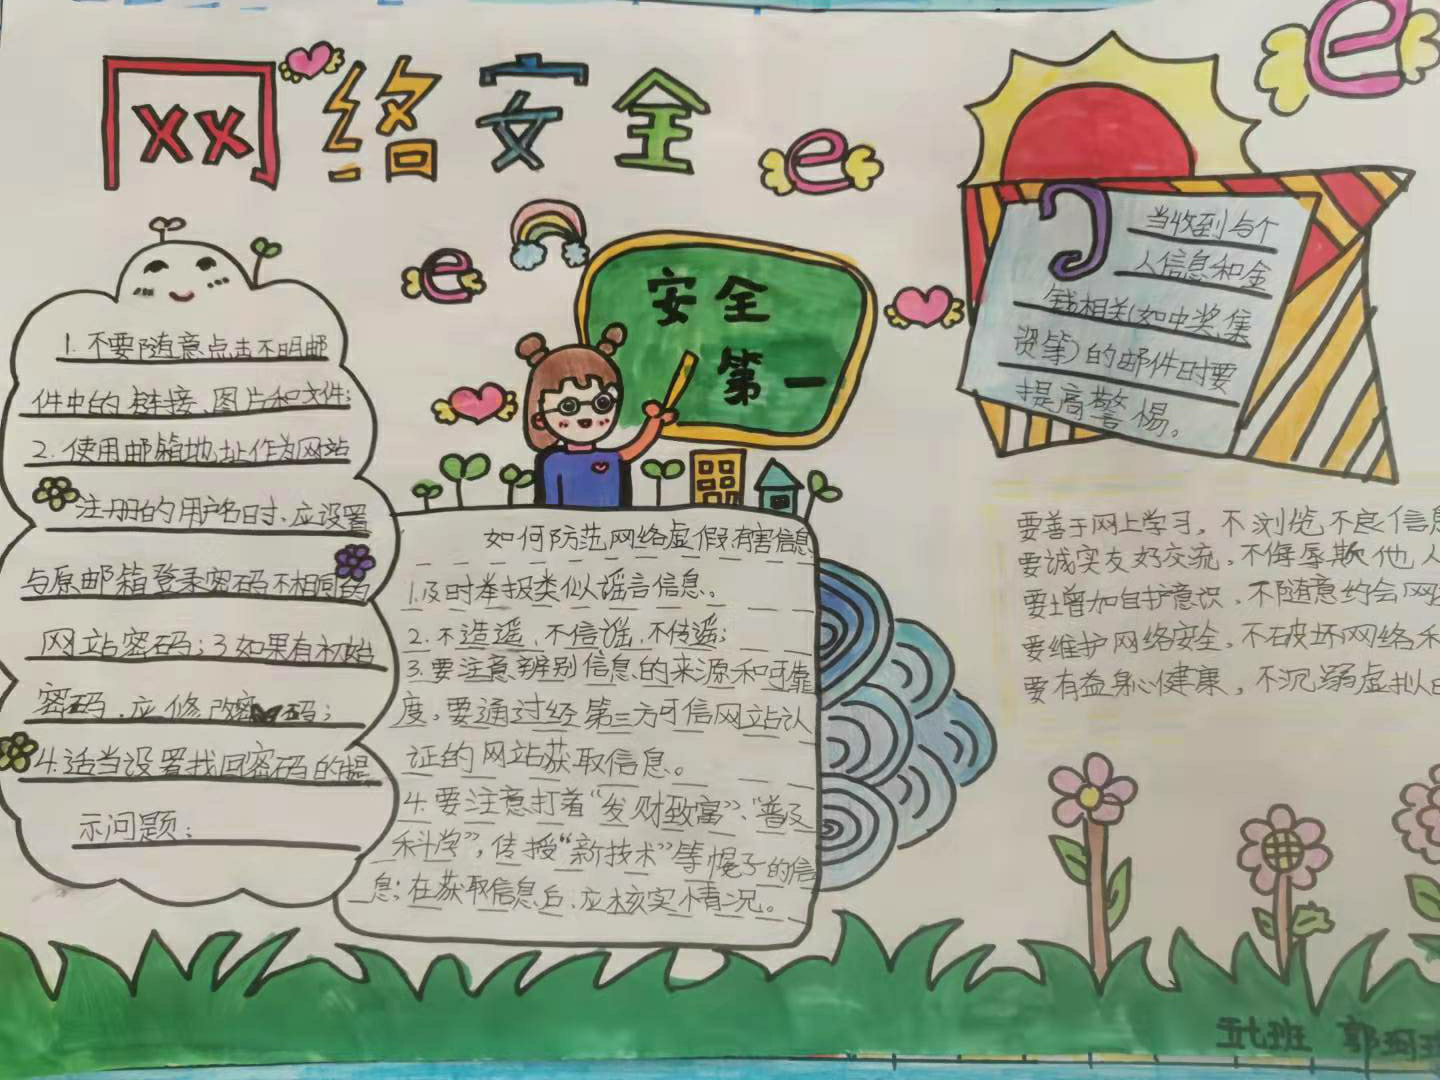 网络安全
e
e
e
安全
第一
1.不要随意点击不明邮
件中的链接、图片和文件;
2.使用邮箱地址作为网站
注册的用户名时、应设置
与原邮箱登录密码不相同的
网站密码;3如果有初始
密码、应修改密码;
4.适当设置找回密码的提
示问题;
如何防范网络虚假有害信息
1.及时举报类似谣言信息。
2.不造遥、不信谣、不传遥;
3.要注意辨别信息的来源和可靠
度,要通过经第三方可信网站认
证的网站获取信息。
4.要注意打着“发财致富”、“普及
科学”,传授“新技术”等幌子的信
息;在获取信息后、应核实情况。
当收到与个
人信息和金
钱相关(如中奖、集
资等)的邮件时要
提高警惕。
要善于网上学习,不浏览不良信息
要诚实友好交流,不侮辱欺他人
要增加自护意识,不随意约会网
要维护网络安全,不破坏网络
要有益身心健康,不沉溺虚拟
五七班 郭珂